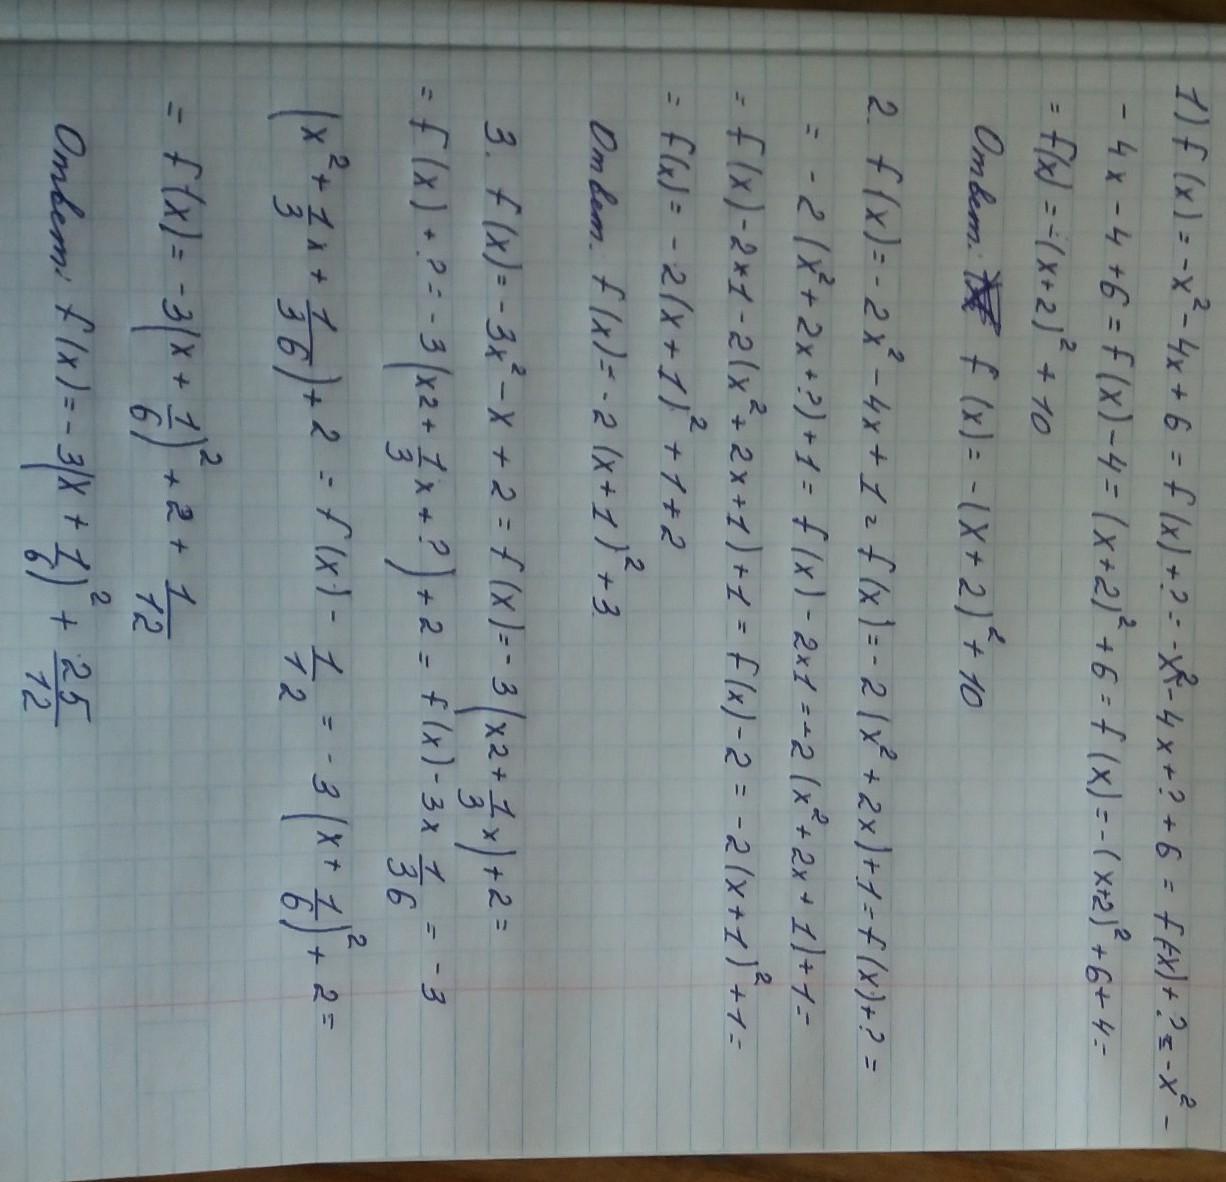 1) f(x) = -x² - 4x + 6 = f(x) + ? = -x² - 4x + ? + 6 = f(x) + ? = -x² -
- 4x - 4 + 6 = f(x) - 4 = (x+2)² + 6 = f(x) = -(x+2)² + 6 + 4 =
= f(x) = -(x+2)² + 10
Ответ. f(x) = -(x+2)² + 10
2. f(x) = -2x² - 4x + 1 = f(x) = -2(x² + 2x) + 1 = f(x) + ? =
= -2(x² + 2x + ?) + 1 = f(x) - 2×1 = -2(x² + 2x + 1) + 1 =
= f(x) - 2×1 - 2(x² + 2x + 1) + 1 = f(x) - 2 = -2(x+1)² + 1 =
= f(x) = -2(x+1)² + 1 + 2
Ответ. f(x) = -2(x+1)² + 3.
3. f(x) = -3x² - x + 2 = f(x) = -3(x2 + 1/3 x) + 2 =
= f(x) + ? = -3(x2 + 1/3 x + ?) + 2 = f(x) - 3× 1/36 = -3
(x² + 1/3 x + 1/36) + 2 = f(x) - 1/12 = -3(x + 1/6)² + 2 =
= f(x) = -3(x + 1/6)² + 2 + 1/12
Ответ: f(x) = -3(x + 1/6)² + 25/12